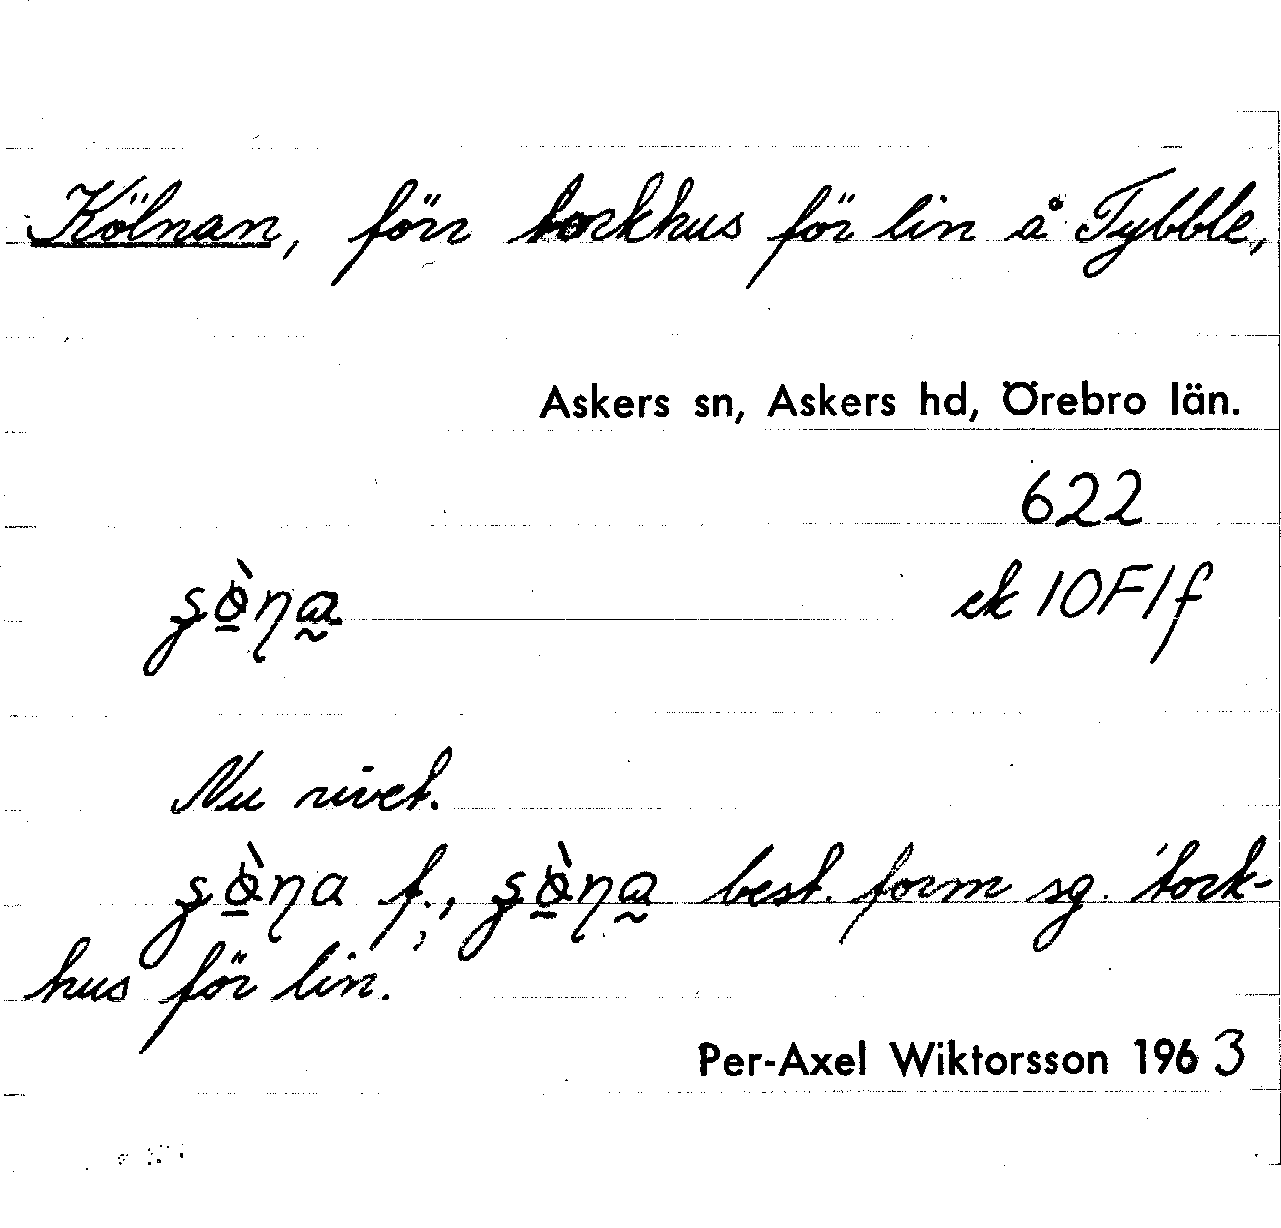 Kölnan, förr torkhus för lin å Tybble,
Askers sn, Askers hd, Örebro län.
622
ek 10F1f
Nu rivet.
f., best. form sg. 'tork-
hus för lin.
Per-Axel Wiktorsson 1963